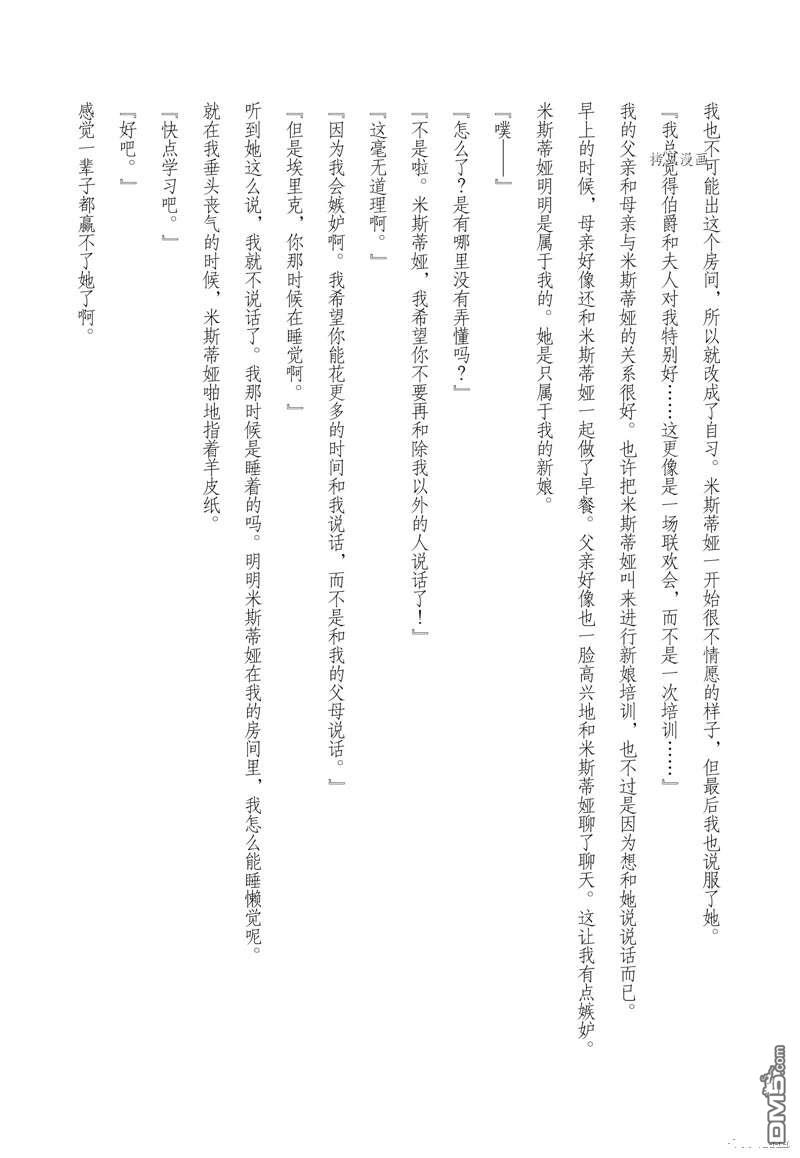 我也不可能出这个房间，所以就改成了自习。米斯蒂娅一开始很不情愿的样子，但最后我也说服了她。
『我总觉得伯爵和夫人对我特别好……这更像是一场联欢会，而不是一次培训……』
我的父亲和母亲与米斯蒂娅的关系很好。也许把米斯蒂娅叫来进行新娘培训，也不过是因为想和她说说话而已。
早上的时候，母亲好像还和米斯蒂娅一起做了早餐。父亲好像也一脸高兴地和米斯蒂娅聊了聊天。这让我有点嫉妒。
米斯蒂娅明明是属于我的。她是只属于我的新娘。
『噗——』
『怎么了？是有哪里没有弄懂吗？』
『不是啦。米斯蒂娅，我希望你不要再和除我以外的人说话了！』
『这毫无道理啊。』
『因为我会嫉妒啊。我希望你能花更多的时间和我说话，而不是和我的父母说话。』
『但是埃里克，你那时候在睡觉啊。』
听到她这么说，我就不说话了。我那时候是睡着的吗。明明米斯蒂娅在我的房间里，我怎么能睡懒觉呢。
就在我垂头丧气的时候，米斯蒂娅啪地指着羊皮纸。
『快点学习吧。』
『好吧。』
感觉一辈子都赢不了她了啊。
拷贝漫画
DM5.com